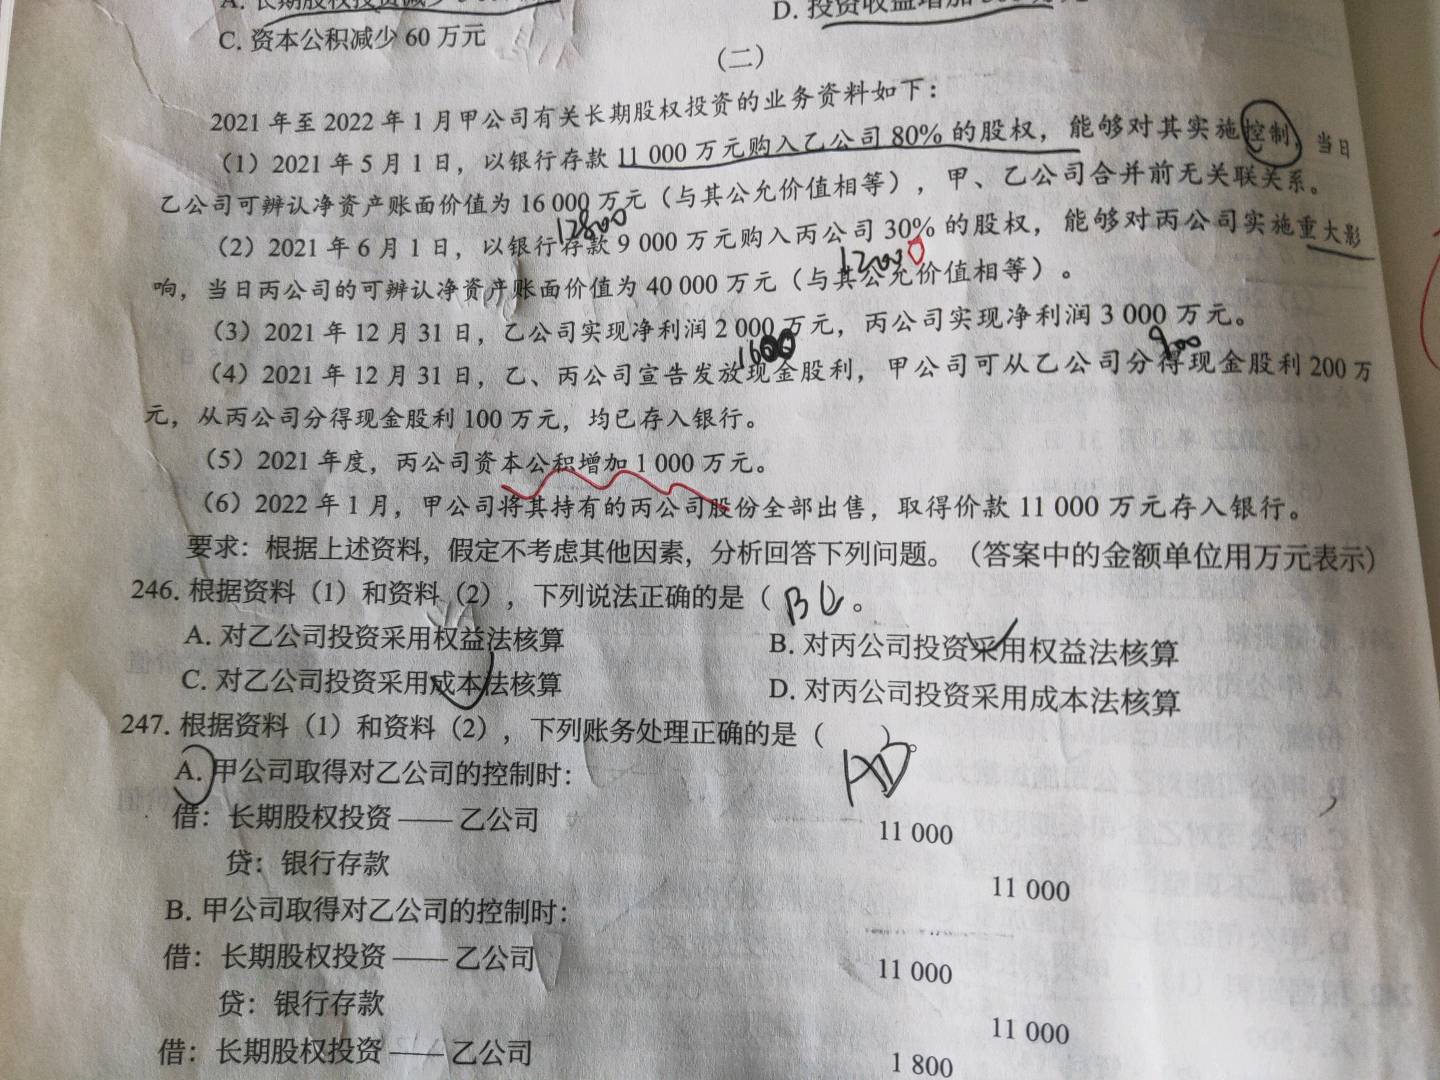 A. 长期股权投资减少
D. 投资收益增加
C. 资本公积减少 60 万元
(二)
2021 年至 2022 年 1 月甲公司有关长期股权投资的业务资料如下：
（1）2021 年 5 月 1 日，以银行存款 11 000 万元购入乙公司 80% 的股权，能够对其实施控制，当日
乙公司可辨认净资产账面价值为 16 000 万元（与其公允价值相等），甲、乙公司合并前无关联关系。
12800
（2）2021 年 6 月 1 日，以银行存款 9 000 万元购入丙公司 30% 的股权，能够对丙公司实施重大影
12000
响，当日丙公司的可辨认净资产账面价值为 40 000 万元（与其公允价值相等）。
（3）2021 年 12 月 31 日，乙公司实现净利润 2 000 万元，丙公司实现净利润 3 000 万元。
1600
900
（4）2021 年 12 月 31 日，乙、丙公司宣告发放现金股利，甲公司可从乙公司分得现金股利 200 万
元，从丙公司分得现金股利 100 万元，均已存入银行。
（5）2021 年度，丙公司资本公积增加 1 000 万元。
（6）2022 年 1 月，甲公司将其持有的丙公司股份全部出售，取得价款 11 000 万元存入银行。
要求：根据上述资料，假定不考虑其他因素，分析回答下列问题。（答案中的金额单位用万元表示）
246. 根据资料（1）和资料（2），下列说法正确的是（ BC 。
A. 对乙公司投资采用权益法核算
B. 对丙公司投资采用权益法核算
C. 对乙公司投资采用成本法核算
D. 对丙公司投资采用成本法核算
247. 根据资料（1）和资料（2），下列账务处理正确的是（ ）。
AD
A. 甲公司取得对乙公司的控制时：
借：长期股权投资 —— 乙公司 11 000
贷：银行存款 11 000
B. 甲公司取得对乙公司的控制时：
借：长期股权投资 —— 乙公司 11 000
贷：银行存款 11 000
借：长期股权投资 —— 乙公司 1 800